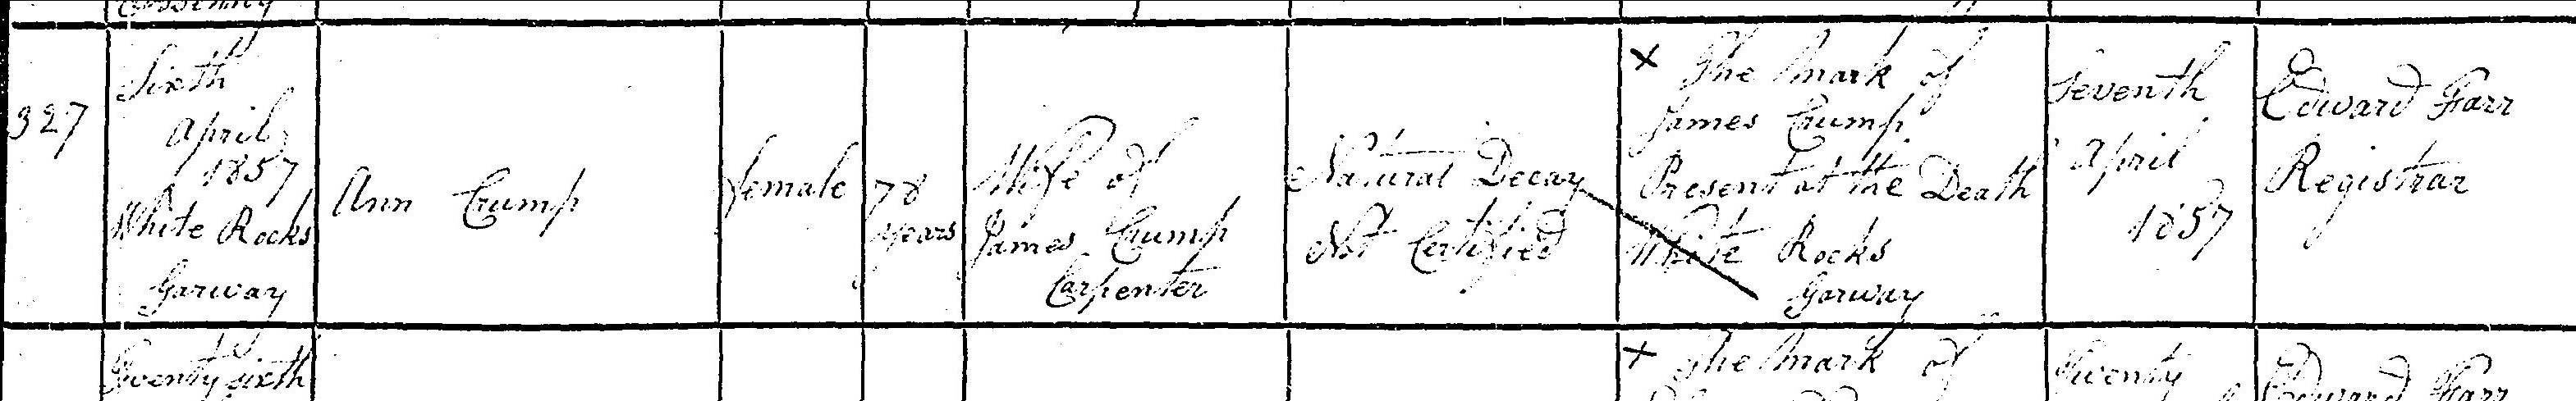 327
Sixth
April
1857
White Rocks
Garway
Ann Crump
female
78
years
Wife of
James Crump
Carpenter
Natural Decay
Not Certified
X The Mark of
James Crump
Present at the Death
White Rocks
Garway
Seventh
April
1857
Edward Farr
Registrar
Twenty sixth
X The Mark of
Twenty
Edward Farr